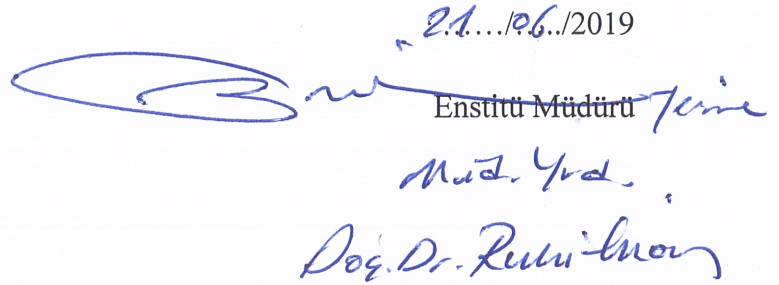 21..../06../2019
Enstitü Müdürü Yerine
Müd. Yrd.
Doç. Dr. Ruhi İnan